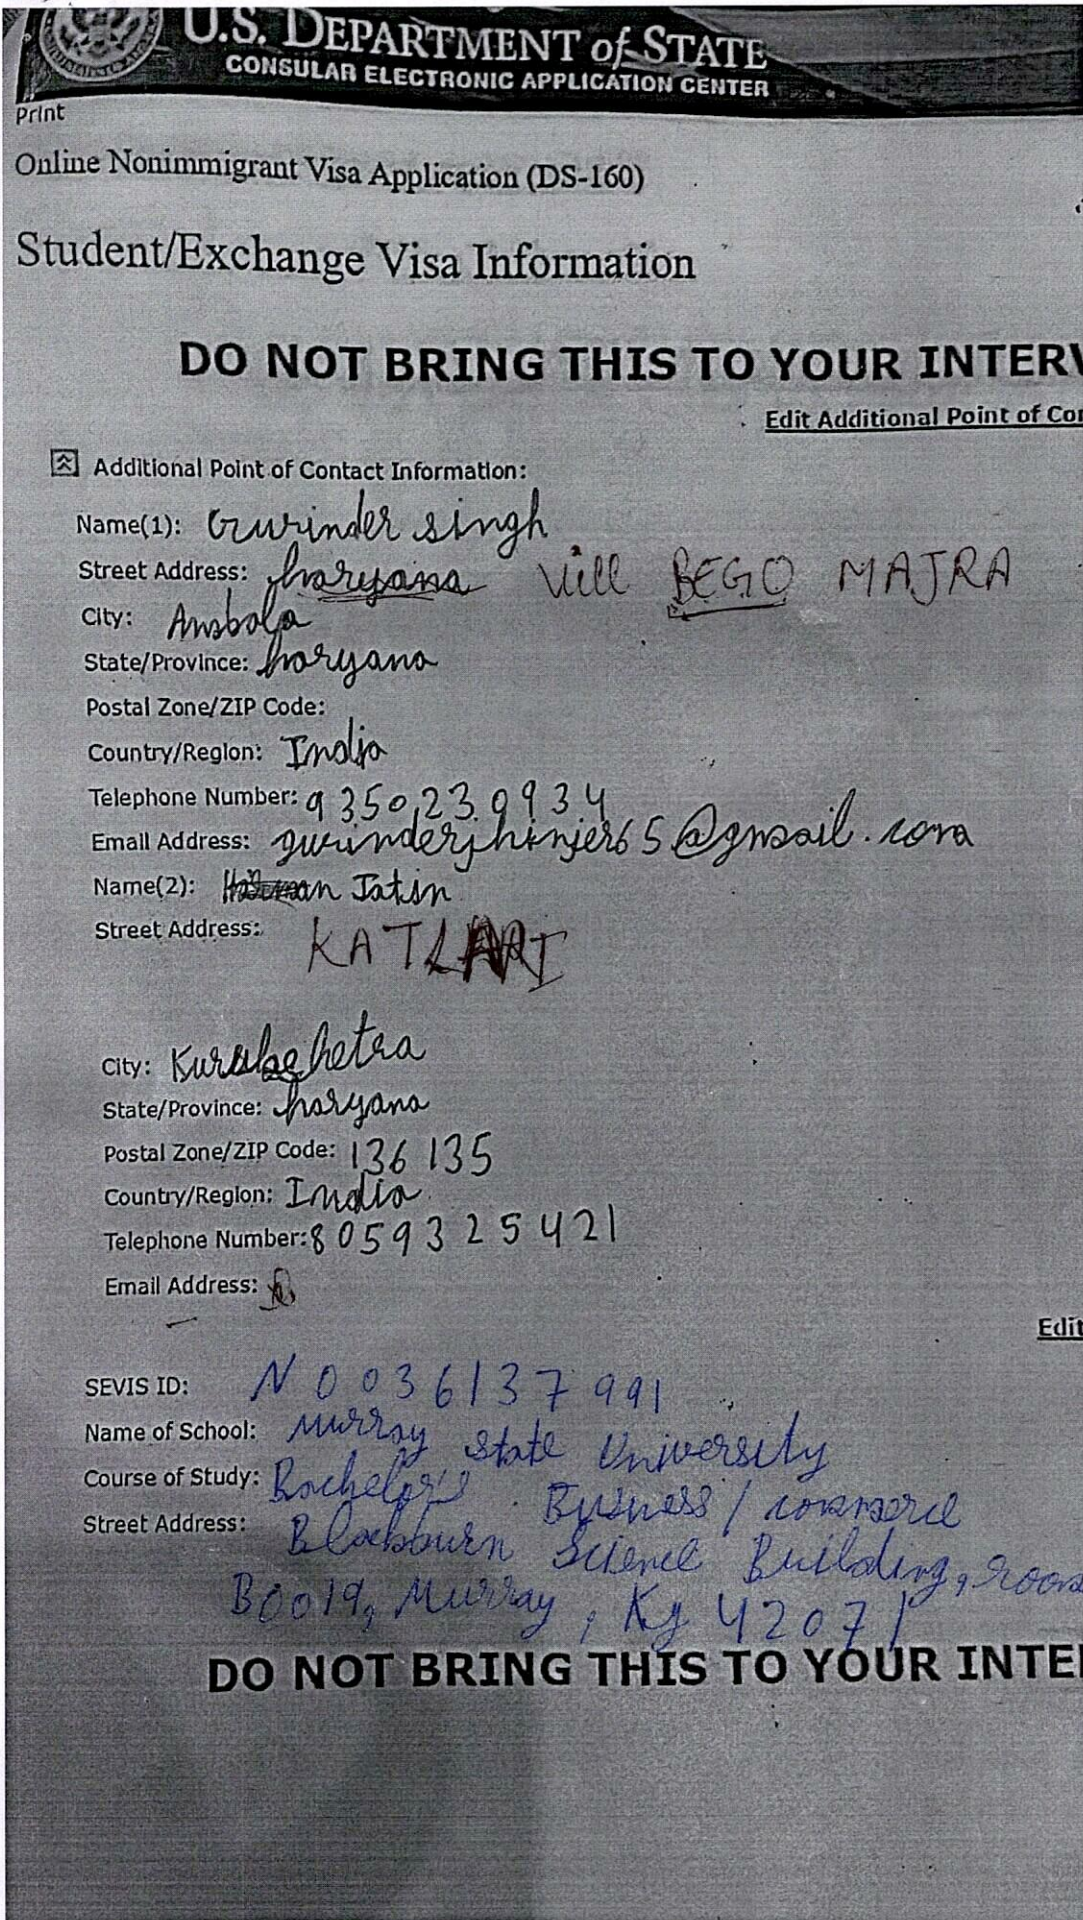 U.S. DEPARTMENT of STATE
CONSULAR ELECTRONIC APPLICATION CENTER
Print
Online Nonimmigrant Visa Application (DS-160)
Student/Exchange Visa Information
DO NOT BRING THIS TO YOUR INTERV
Edit Additional Point of Con
Additional Point of Contact Information:
Name(1): Gurinder singh
Street Address: haryana Vill BEGO MAJRA
City: Ambala
State/Province: haryana
Postal Zone/ZIP Code:
Country/Region: India
Telephone Number: 9350230934
Email Address: @gmail.com
Name(2): Jatin
Street Address:
City:
State/Province: haryana
Postal Zone/ZIP Code: 136135
Country/Region: India
Telephone Number: 8059325421
Email Address:
Edit
SEVIS ID: N0036137991
Name of School: Murray state University
Course of Study: Bachelor's Business / commerce
Street Address: Blackburn Science Building, room
B0019, Murray, Ky 42071
DO NOT BRING THIS TO YOUR INTE